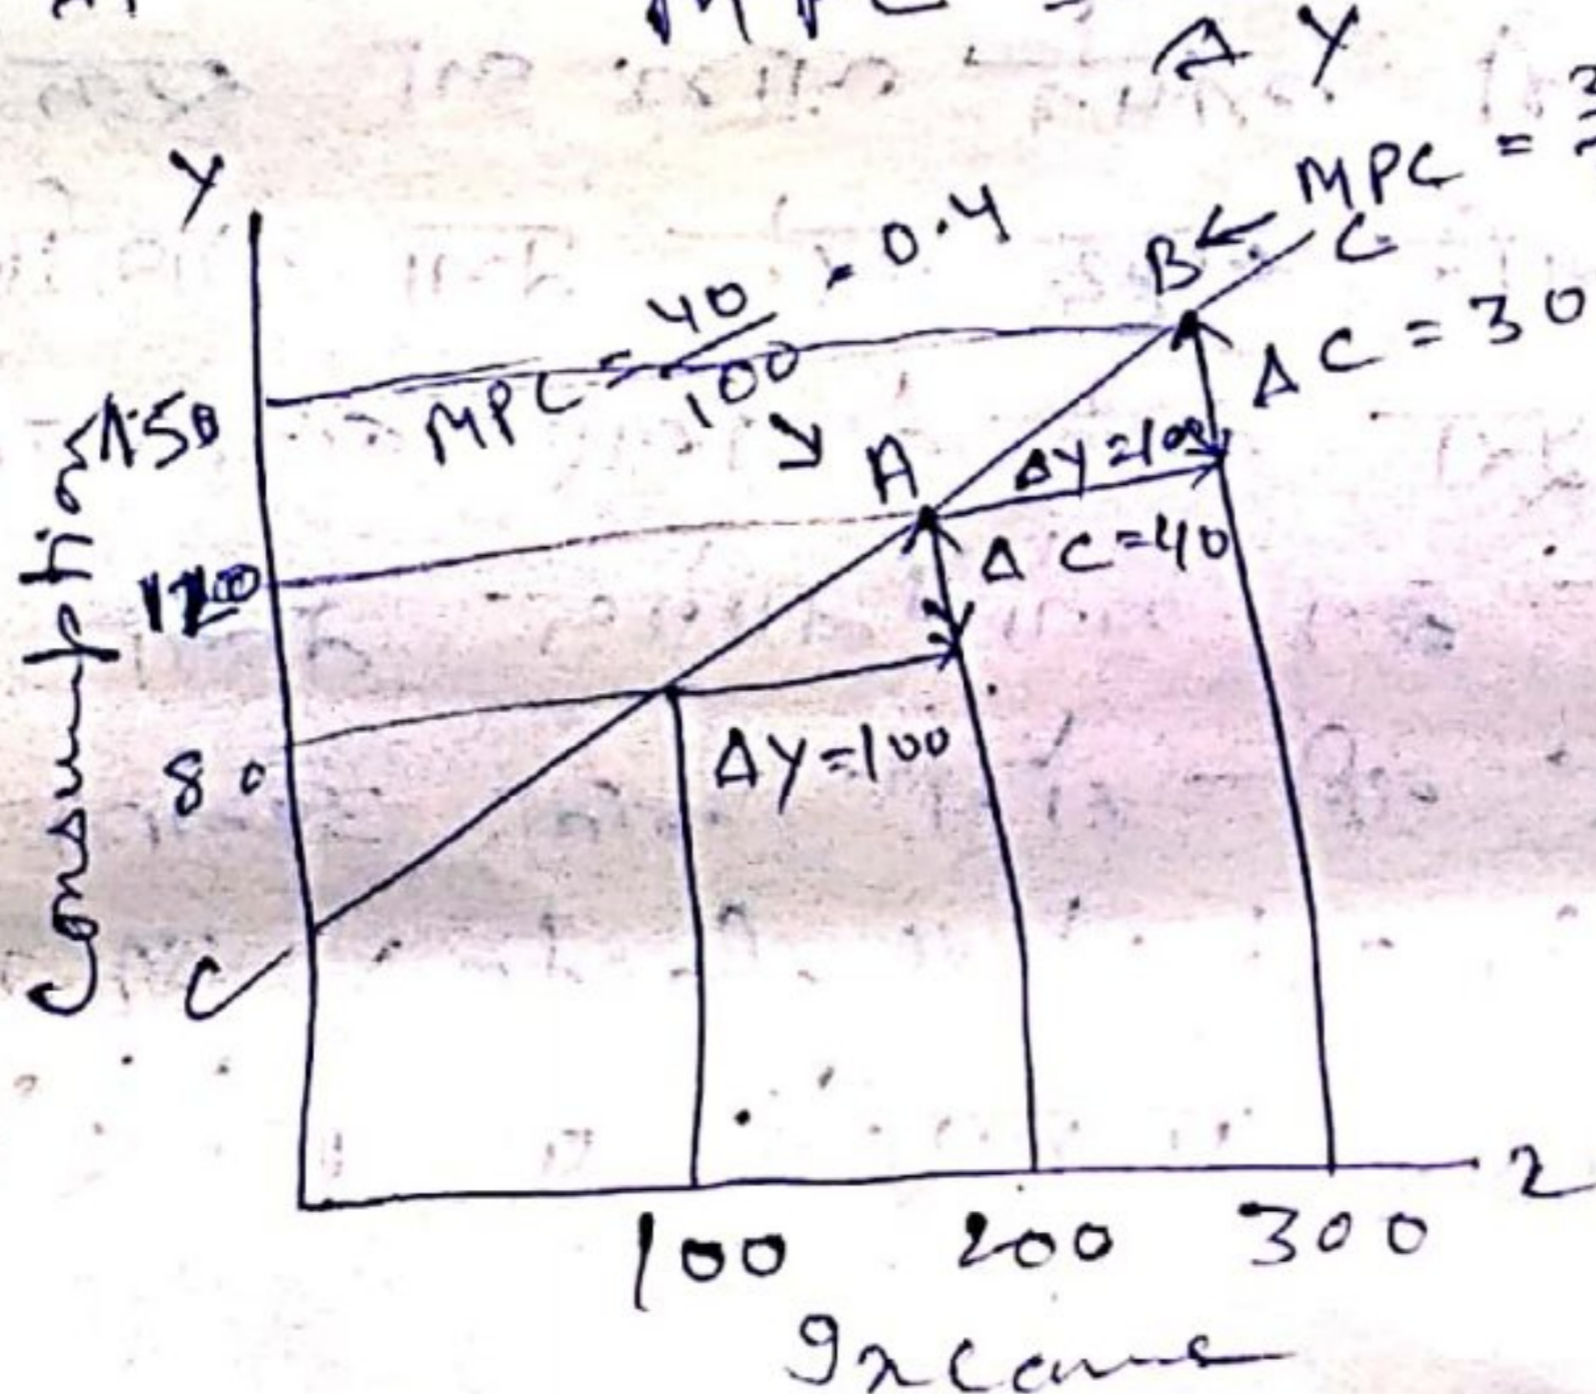 MPC =
Δ Y
Y
MPC =
MPC = 40/100 = 0.4
B ← C
Δ C = 30
150
A
ΔY = 100
Δ C = 40
120
80
ΔY = 100
Consumption
C
100 200 300
Income